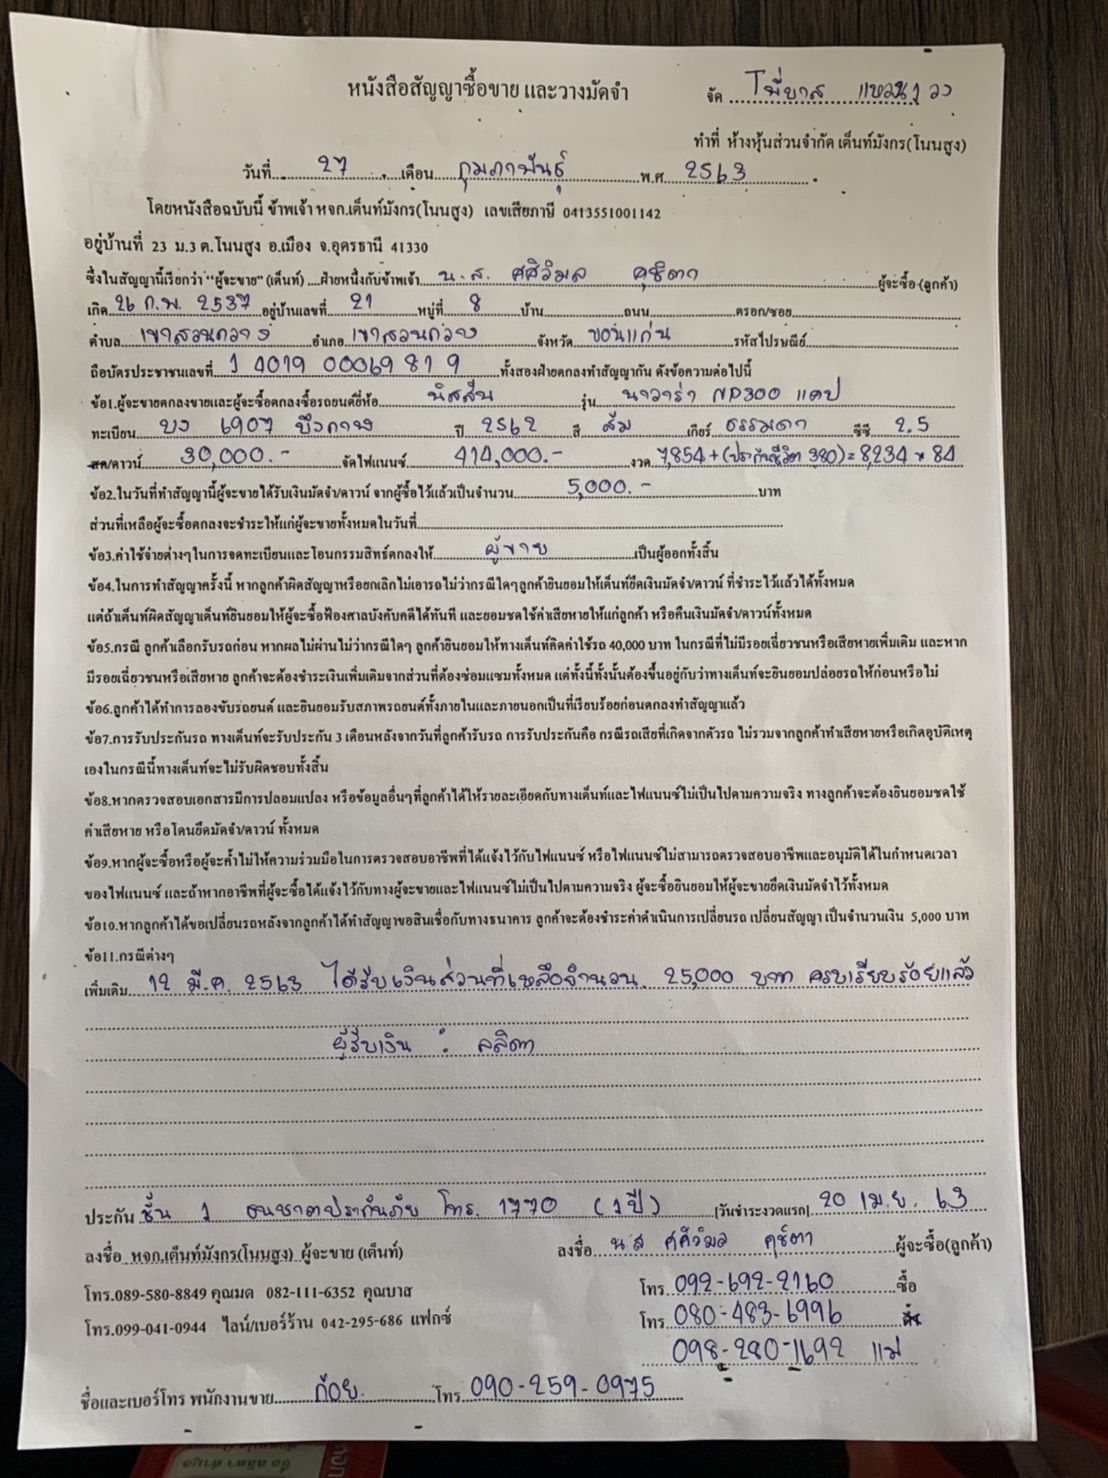 หนังสือสัญญาซื้อขาย และวางมัดจำ
จัด
ทำที่ ห้างหุ้นส่วนจำกัด เต็นท์มังกร(โนนสูง)
วันที่ 27 เดือน กุมภาพันธุ์ พ.ศ 2563
โดยหนังสือฉบับนี้ ข้าพเจ้า หจก.เต็นท์มังกร(โนนสูง) เลขเสียภาษี 0413551001142
อยู่บ้านที่ 23 ม.3 ต.โนนสูง อ.เมือง จ.อุดรธานี 41330
ซึ่งในสัญญานี้เรียกว่า "ผู้จะขาย" (เต็นท์) ....ฝ่ายหนึ่งกับข้าพเจ้า น.ส. ศศิวิมล คุชิตา ผู้จะซื้อ (ลูกค้า)
เกิด 26 ก.พ. 2537 อยู่บ้านเลขที่ 21 หมู่ที่ 8 บ้าน ถนน ตรอก/ซอย
ตำบล เขาสวนกวาง อำเภอ เขาสวนกวาง จังหวัด ขอนแก่น รหัสไปรษณีย์
ถือบัตรประชาชนเลขที่ 1 4019 00069 81 9 ทั้งสองฝ่ายตกลงทำสัญญากัน ดังข้อความต่อไปนี้
ข้อ1.ผู้จะขายตกลงขายและผู้จะซื้อตกลงซื้อรถยนต์ยี่ห้อ นิสสัน รุ่น นาวาร่า NP300 แคป
ทะเบียน บง 6907 บึงกาฬ ปี 2562 สี ส้ม เกียร์ ธรรมดา ซีซี 2.5
สด/ดาวน์ 30,000.- จัดไฟแนนซ์ 414,000.- งวด 7,854+(ประกันชีวิต 380)=8,234 x 84
ข้อ2.ในวันที่ทำสัญญานี้ผู้จะขายได้รับเงินมัดจำ/ดาวน์ จากผู้ซื้อไว้แล้วเป็นจำนวน 5,000.- บาท
ส่วนที่เหลือผู้จะซื้อตกลงจะชำระให้แก่ผู้จะขายทั้งหมดในวันที่
ข้อ3.ค่าใช้จ่ายต่างๆในการจดทะเบียนและโอนกรรมสิทธ์ตกลงให้ ผู้ขาย เป็นผู้ออกทั้งสิ้น
ข้อ4.ในการทำสัญญาครั้งนี้ หากลูกค้าผิดสัญญาหรือยกเลิกไม่เอารถไม่ว่ากรณีใดๆลูกค้ายินยอมให้เต็นท์ยึดเงินมัดจำ/ดาวน์ ที่ชำระไว้แล้วได้ทั้งหมด
แต่ถ้าเต็นท์ผิดสัญญาเต็นท์ยินยอมให้ผู้จะซื้อฟ้องศาลบังคับคดีได้ทันที และยอมชดใช้ค่าเสียหายให้แก่ลูกค้า หรือคืนเงินมัดจำ/ดาวน์ทั้งหมด
ข้อ5.กรณี ลูกค้าเลือกรับรถก่อน หากผลไม่ผ่านไม่ว่ากรณีใดๆ ลูกค้ายินยอมให้ทางเต็นท์คิดค่าใช้รถ 40,000 บาท ในกรณีที่ไม่มีรอยเฉี่ยวชนหรือเสียหายเพิ่มเติม และหาก
มีรอยเฉี่ยวชนหรือเสียหาย ลูกค้าจะต้องชำระเงินเพิ่มเติมจากส่วนที่ต้องซ่อมแซมทั้งหมด แต่ทั้งนี้ทั้งนั้นต้องขึ้นอยู่กับว่าทางเต็นท์จะยินยอมปล่อยรถให้ก่อนหรือไม่
ข้อ6.ลูกค้าได้ทำการลองขับรถยนต์ และยินยอมรับสภาพรถยนต์ทั้งภายในและภายนอกเป็นที่เรียบร้อยก่อนตกลงทำสัญญาแล้ว
ข้อ7.การรับประกันรถ ทางเต็นท์จะรับประกัน 3 เดือนหลังจากวันที่ลูกค้ารับรถ การรับประกันคือ กรณีรถเสียที่เกิดจากตัวรถ ไม่รวมจากลูกค้าทำเสียหายหรือเกิดอุบัติเหตุ
เองในกรณีนี้ทางเต็นท์จะไม่รับผิดชอบทั้งสิ้น
ข้อ8.หากตรวจสอบเอกสารมีการปลอมแปลง หรือข้อมูลอื่นๆที่ลูกค้าได้ให้รายละเอียดกับทางเต็นท์และไฟแนนซ์ไม่เป็นไปตามความจริง ทางลูกค้าจะต้องยินยอมชดใช้
ค่าเสียหาย หรือโดนยึดมัดจำ/ดาวน์ ทั้งหมด
ข้อ9.หากผู้จะซื้อหรือผู้จะค้ำไม่ให้ความร่วมมือในการตรวจสอบอาชีพที่ได้แจ้งไว้กับไฟแนนซ์ หรือไฟแนนซ์ไม่สามารถตรวจสอบอาชีพและอนุมัติได้ในกำหนดเวลา
ของไฟแนนซ์ และถ้าหากอาชีพที่ผู้จะซื้อได้แจ้งไว้กับทางผู้จะขายและไฟแนนซ์ไม่เป็นไปตามความจริง ผู้จะซื้อยินยอมให้ผู้จะขายยึดเงินมัดจำไว้ทั้งหมด
ข้อ10.หากลูกค้าได้ขอเปลี่ยนรถหลังจากลูกค้าได้ทำสัญญาขอสินเชื่อกับทางธนาคาร ลูกค้าจะต้องชำระค่าดำเนินการเปลี่ยนรถ เปลี่ยนสัญญา เป็นจำนวนเงิน 5,000 บาท
ข้อ11.กรณีต่างๆ
เพิ่มเติม 12 มี.ค. 2563 ได้รับเงินส่วนที่เหลือจำนวน 25,000 บาท ครบเรียบร้อยแล้ว
ผู้รับเงิน : ลลิตา
ประกัน ชั้น 1 ธนชาตประกันภัย โทร. 1770 (1 ปี) [วันชำระงวดแรก] 20 เม.ย. 63
ลงชื่อ หจก.เต็นท์มังกร(โนนสูง) ผู้จะขาย (เต็นท์) ลงชื่อ น.ส ศศิวิมล คุชิตา ผู้จะซื้อ(ลูกค้า)
โทร.089-580-8849 คุณมด 082-111-6352 คุณบาส โทร 092-692-2160 ซื้อ
โทร.099-041-0944 ไลน์/เบอร์ร้าน 042-295-686 แฟกซ์ โทร 080-483-6996
098-280-1692 แม่
ชื่อและเบอร์โทร พนักงานขาย ก้อย โทร 090-259-0975